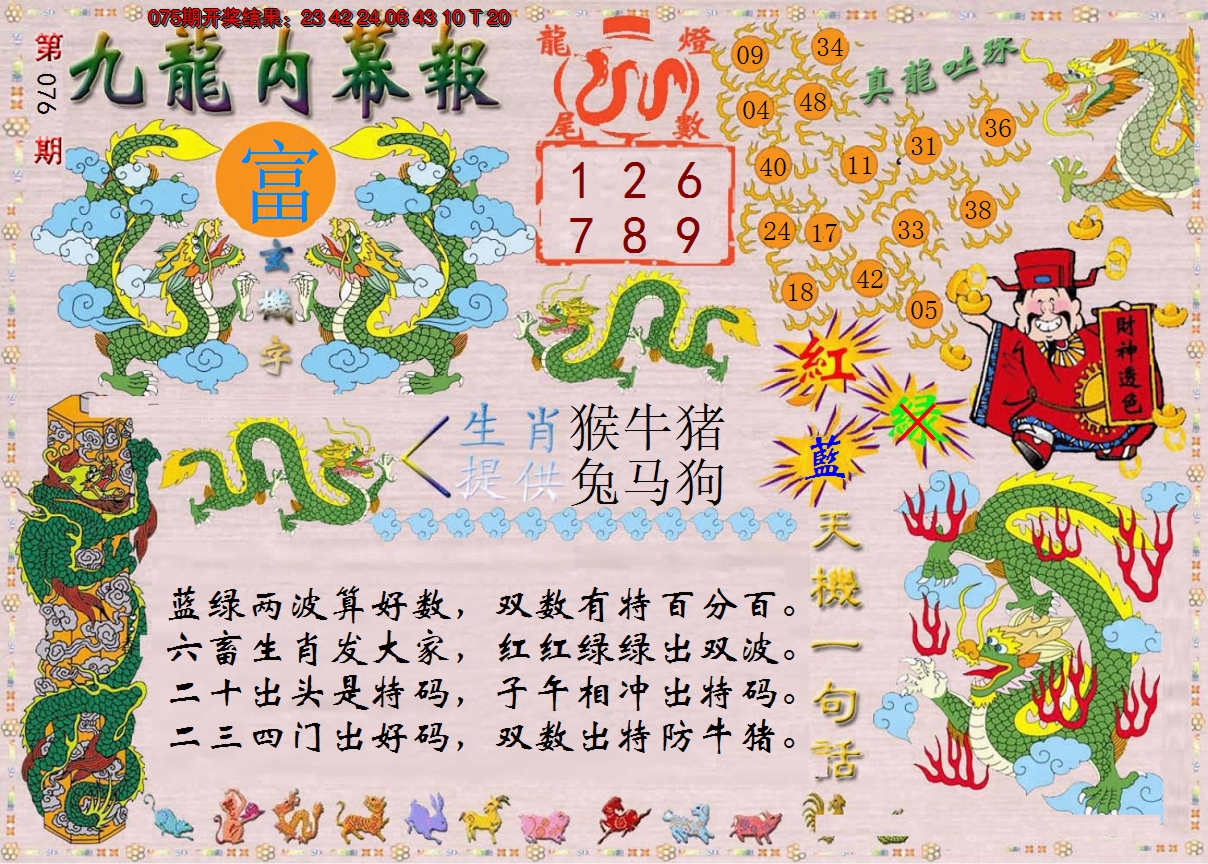 075期开奖结果：23 42 24 06 43 10 T 20
第076期
九龍内幕報
富
玄機字
龍燈
尾數
1 2 6
7 8 9
真龍吐珠
09 34
04 48
40 11 31 36
24 17 33 38
18 42 05
財神透色
紅
绿
藍
生肖 猴牛猪
提供 兔马狗
天機一句話
蓝绿两波算好数，双数有特百分百。
六畜生肖发大家，红红绿绿出双波。
二十出头是特码，子午相冲出特码。
二三四门出好码，双数出特防牛猪。